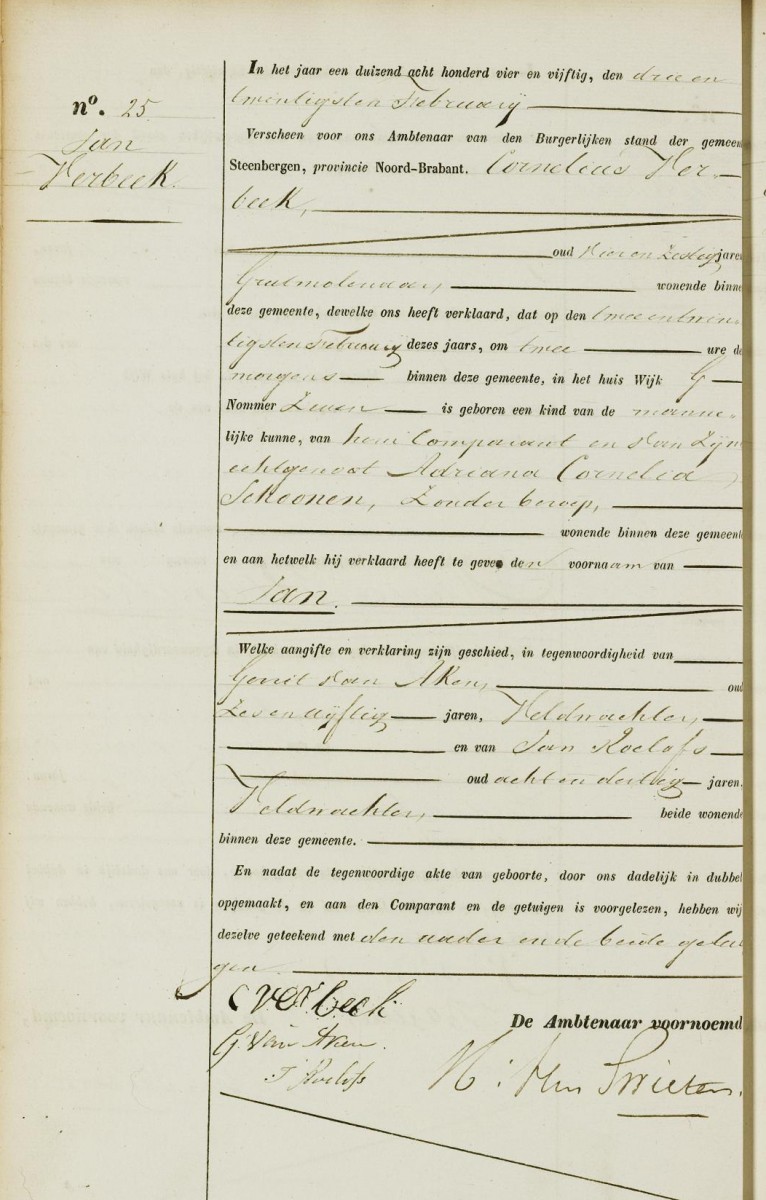 nº. 25
Jan
Verbeek.
In het jaar een duizend acht honderd vier en vijftig, den drie en
twintigsten Februarij
Verscheen voor ons Ambtenaar van den Burgerlijken stand der gemeen
Steenbergen, provincie Noord-Brabant. Cornelius Ver-
beek,
oud Vier en Zestig jaren
Grutmolenaar, wonende binne
deze gemeente, dewelke ons heeft verklaard, dat op den twee en twin-
tigsten Februarij dezes jaars, om twee ure de
morgens binnen deze gemeente, in het huis Wijk G
Nommer Zeven is geboren een kind van de manne-
lijke kunne, van hem Comparant en van Zijn
echtgenoot Adriana Cornelia
Schoonen, Zonder beroep,
wonende binnen deze gemeente
en aan hetwelk hij verklaard heeft te geven den voornaam van
Jan.
Welke aangifte en verklaring zijn geschied, in tegenwoordigheid van
Gerrit van Aken, oud
Zes en vijftig jaren, Veldwachter,
en van Jan Roelofs
oud acht en dertig jaren.
Veldwachter, beide wonende
binnen deze gemeente.
En nadat de tegenwoordige akte van geboorte, door ons dadelijk in dubbel
opgemaakt, en aan den Comparant en de getuigen is voorgelezen, hebben wij
dezelve geteekend met den vader en de beide getui
gen.
C Verbeek
De Ambtenaar voornoemd
G. Van Aken.
J Roelofs